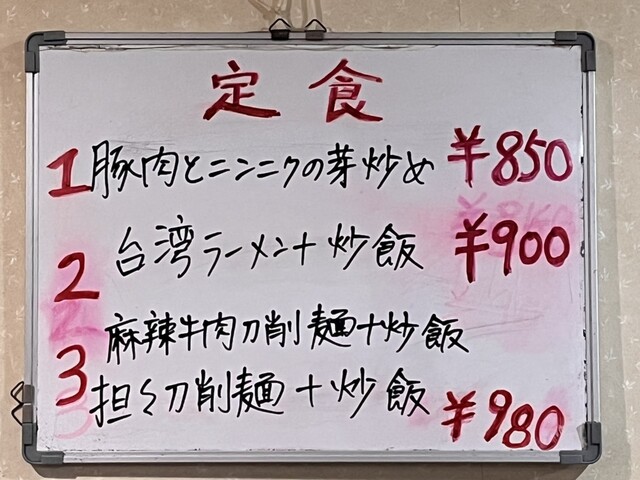 定食
1 豚肉とニンニクの芽炒め ¥850
2 台湾ラーメン+炒飯 ¥900
麻辣牛肉刀削麺+炒飯
3 担々刀削麺+炒飯 ¥980